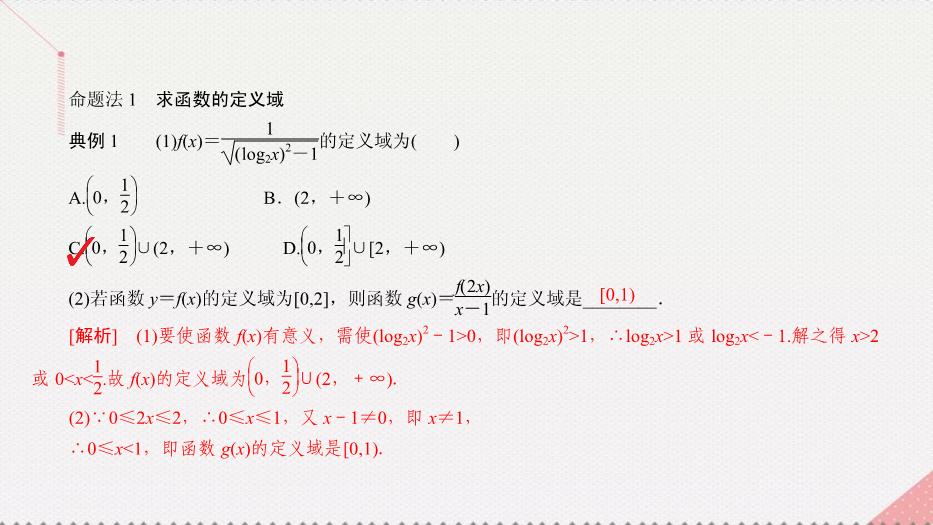 命题法1 求函数的定义域
典例1 (1)f(x)=1/√((log₂x)²-1)的定义域为( )
A.(0,1/2) B.(2,+∞)
C.(0,1/2)∪(2,+∞) D.(0,1/2]∪[2,+∞)
(2)若函数y=f(x)的定义域为[0,2],则函数g(x)=f(2x)/(x-1)的定义域是 [0,1) .
[解析] (1)要使函数f(x)有意义,需使(log₂x)²-1>0,即(log₂x)²>1,∴log₂x>1或log₂x<-1.解之得x>2
或0<x<1/2.故f(x)的定义域为(0,1/2)∪(2,+∞).
(2)∵0≤2x≤2,∴0≤x≤1,又x-1≠0,即x≠1,
∴0≤x<1,即函数g(x)的定义域是[0,1).